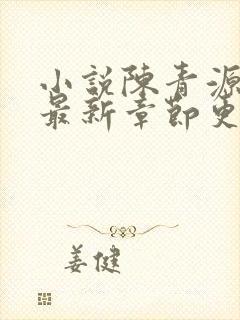 小説陳青源
最新章節更
姜健